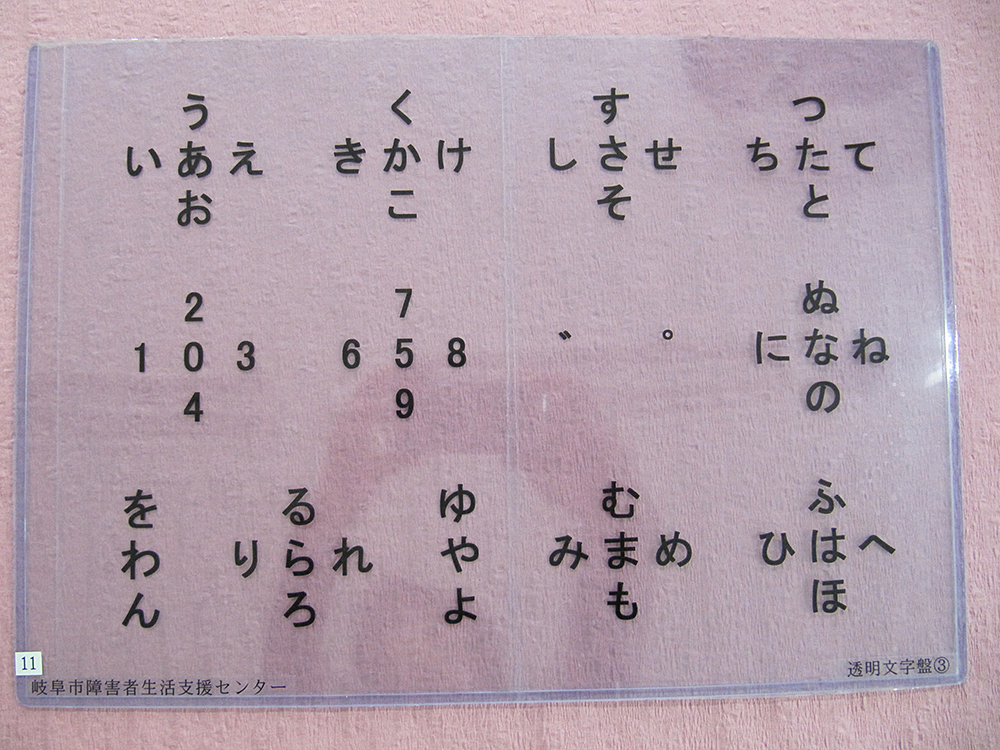 う く す つ
い あ え き か け し さ せ ち た て
お こ そ と
2 7 ぬ
1 0 3 6 5 8 ゛ ゜ に な ね
4 9 の
を る ゆ む ふ
わ り ら れ や み ま め ひ は へ
ん ろ よ も ほ
11
岐阜市障害者生活支援センター
透明文字盤③